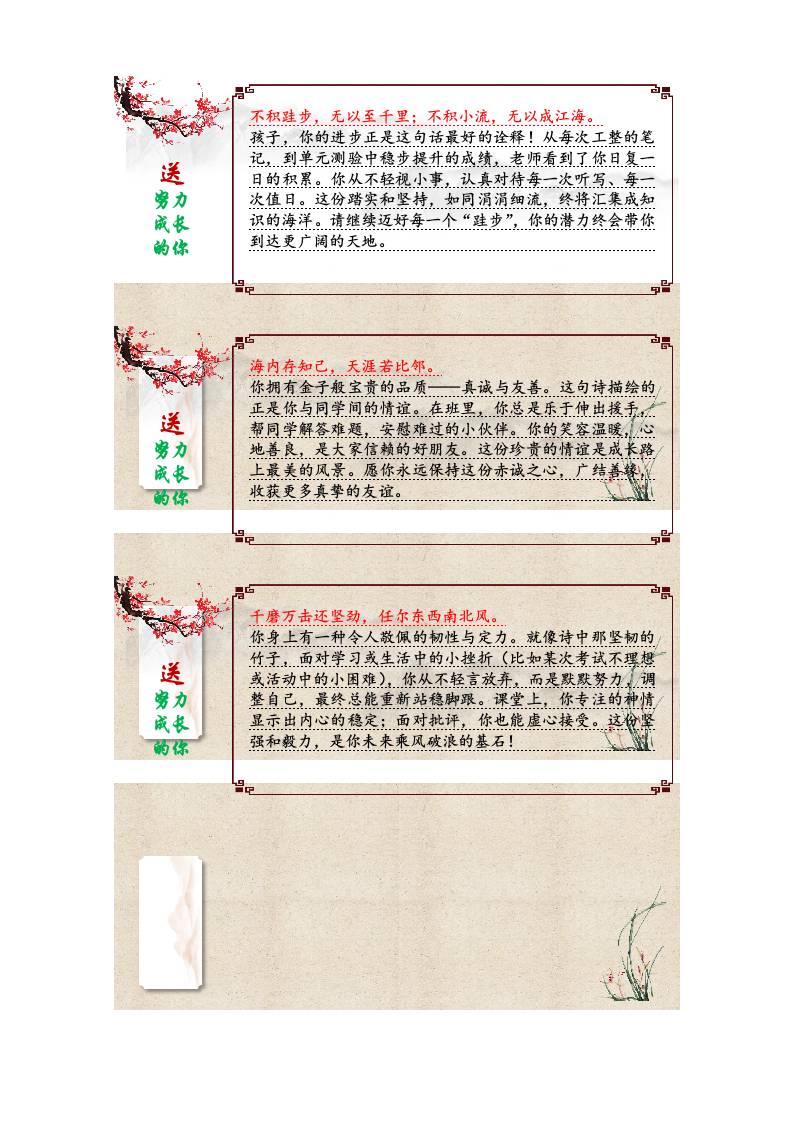 送
努力
成长
的你
不积跬步，无以至千里；不积小流，无以成江海。
孩子，你的进步正是这句话最好的诠释！从每次工整的笔
记，到单元测验中稳步提升的成绩，老师看到了你日复一
日的积累。你从不轻视小事，认真对待每一次听写、每一
次值日。这份踏实和坚持，如同涓涓细流，终将汇集成知
识的海洋。请继续迈好每一个“跬步”，你的潜力终会带你
到达更广阔的天地。
送
努力
成长
的你
海内存知己，天涯若比邻。
你拥有金子般宝贵的品质——真诚与友善。这句诗描绘的
正是你与同学间的情谊。在班里，你总是乐于伸出援手，
帮同学解答难题，安慰难过的小伙伴。你的笑容温暖，心
地善良，是大家信赖的好朋友。这份珍贵的情谊是成长路
上最美的风景。愿你永远保持这份赤诚之心，广结善缘，
收获更多真挚的友谊。
送
努力
成长
的你
千磨万击还坚劲，任尔东西南北风。
你身上有一种令人敬佩的韧性与定力。就像诗中那坚韧的
竹子，面对学习或生活中的小挫折（比如某次考试不理想
或活动中的小困难），你从不轻言放弃，而是默默努力，调
整自己，最终总能重新站稳脚跟。课堂上，你专注的神情
显示出内心的稳定；面对批评，你也能虚心接受。这份坚
强和毅力，是你未来乘风破浪的基石！